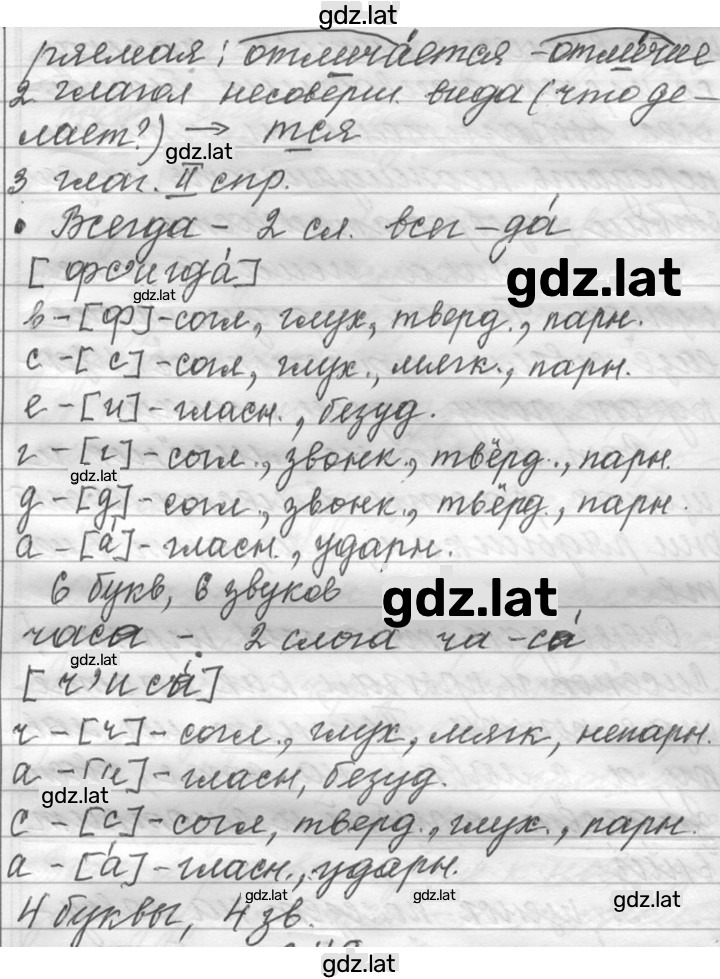 gdz.lat
ряемая; отлича́ется - отли́чие
2 глагол несоверш. вида (что де-
лает?) → тся
gdz.lat
3 глаг. II спр.
• Всегда - 2 сл. всег - да́
[фс'игда́]
gdz.lat
gdz.lat
в - [ф] - согл, глух, тверд., парн.
с - [с] - согл, глух., мягк., парн.
е - [и] - гласн., безуд.
г - [г] - согл., звонк., твёрд., парн.
gdz.lat
д - [д] - согл., звонк., твёрд., парн.
а - [а́] - гласн., ударн.
6 букв, 6 звуков
gdz.lat
часа - 2 слога ча - са́
gdz.lat
[ч'иса́]
ч - [ч] - согл., глух, мягк, непарн.
а - [и] - гласн, безуд.
gdz.lat
с - [с] - согл, тверд., глух., парн.
а - [а́] - гласн., ударн.
gdz.lat
gdz.lat
gdz.lat
4 буквы, 4 зв.
gdz.lat